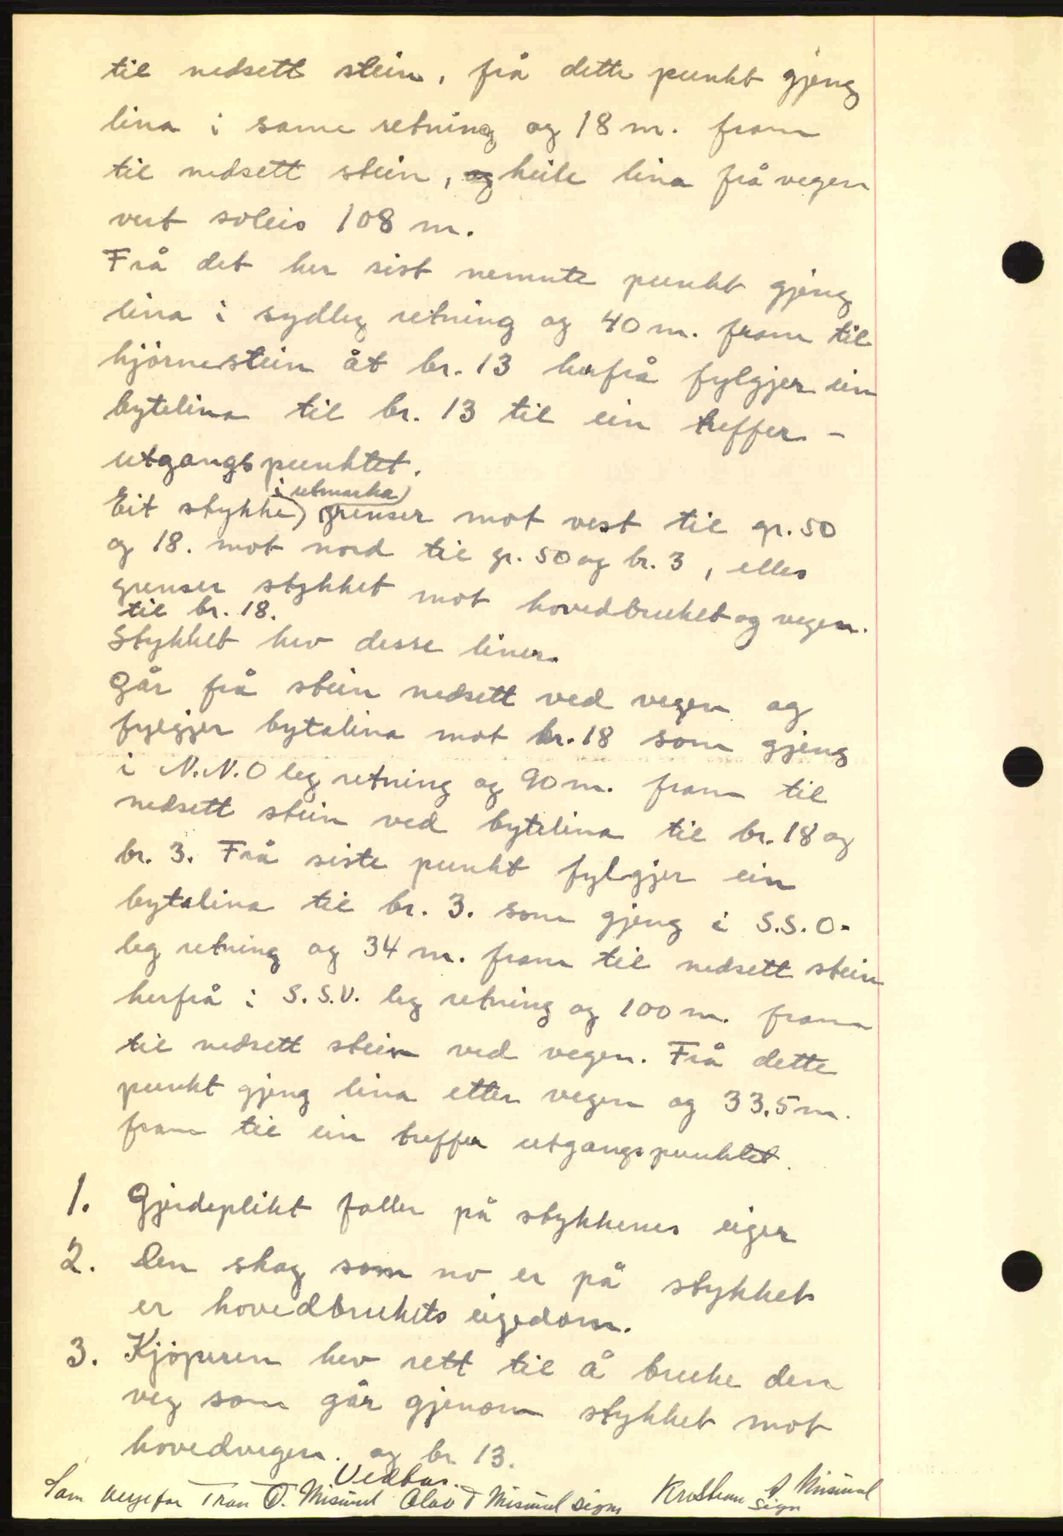 til nedsett stein, frå dette punkt gjeng
lina i same retning og 18 m. fram
til nedsett stein, og heile lina frå vegen
vert soleis 108 m.
Frå det her sist nemnte punkt gjeng
lina i sydleg retning og 40 m. fram til
hjörnestein åt br. 13 herfrå fylgjer ein
bytelina til br. 13 til ein treffer -
utgangspunktet.
i utmarka
Eit stykke) grenser mot vest til gr. 50
og 18. mot nord til gr. 50 og br. 3, elles
grenser stykket mot hovedbruket og vegen.
til br. 18.
Stykket hev desse liner.
Går frå stein nedsett ved vegen og
fylgjer bytalina mot br. 18 som gjeng
i N.N.O leg retning og 90 m. fram til
nedsett stein ved bytelina til br. 18 og
br. 3. Frå siste punkt fylgjer ein
bytalina til br. 3. som gjeng i S.S.O.
leg retning og 34 m. fram til nedsett stein
herfrå i S.S.V. leg retning og 100 m. fram
til nedsett stein ved vegen. Frå dette
punkt gjeng lina etter vegen og 33,5 m.
fram til ein treffer utgangspunktet.
1. Gjerdeplikt faller på stykkenes eiger
2. Den skog som no er på stykket
er hovedbrukets eigedom.
3. Kjöperen hev rett til å bruke den
veg som går gjenom stykket mot
hovedvegen. og br. 13.
Som verje for Tran O. Misund Olav T Misund sign
Kristian Misund
sign